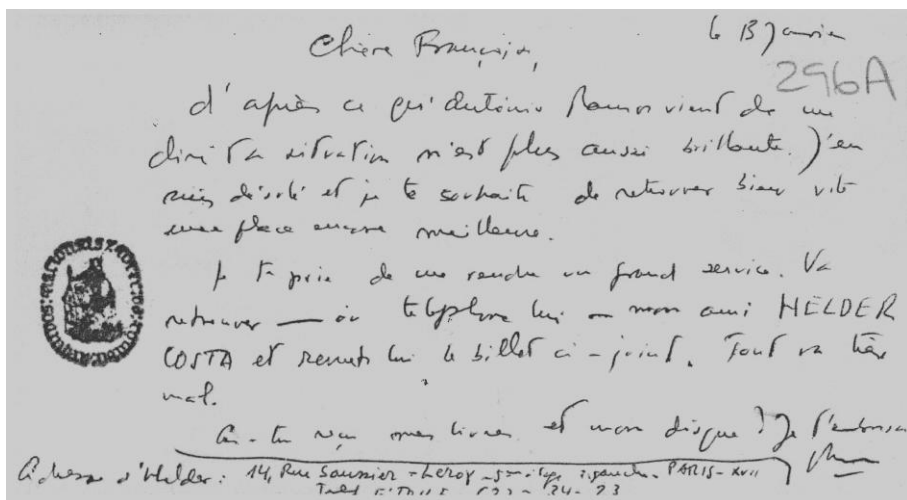 le 13 Janvier
Chère Françoise,
296A
d'après ce qu'António Ramos vient de me
dire ta situation n'est plus aussi brillante. J'en
suis désolé et je te souhaite de retrouver bien vite
une place encore meilleure.
Je te prie de me rendre un grand service. Va
retrouver — ou téléphone lui — mon ami HELDER
COSTA et remets lui le billet ci-joint. Tout va très
mal.
As-tu reçu mes livres et mon disque? Je t'embrasse
Adresse d'Helder: 14, Rue Saussier-Leroy - 5me étage, à gauche - PARIS-XVII